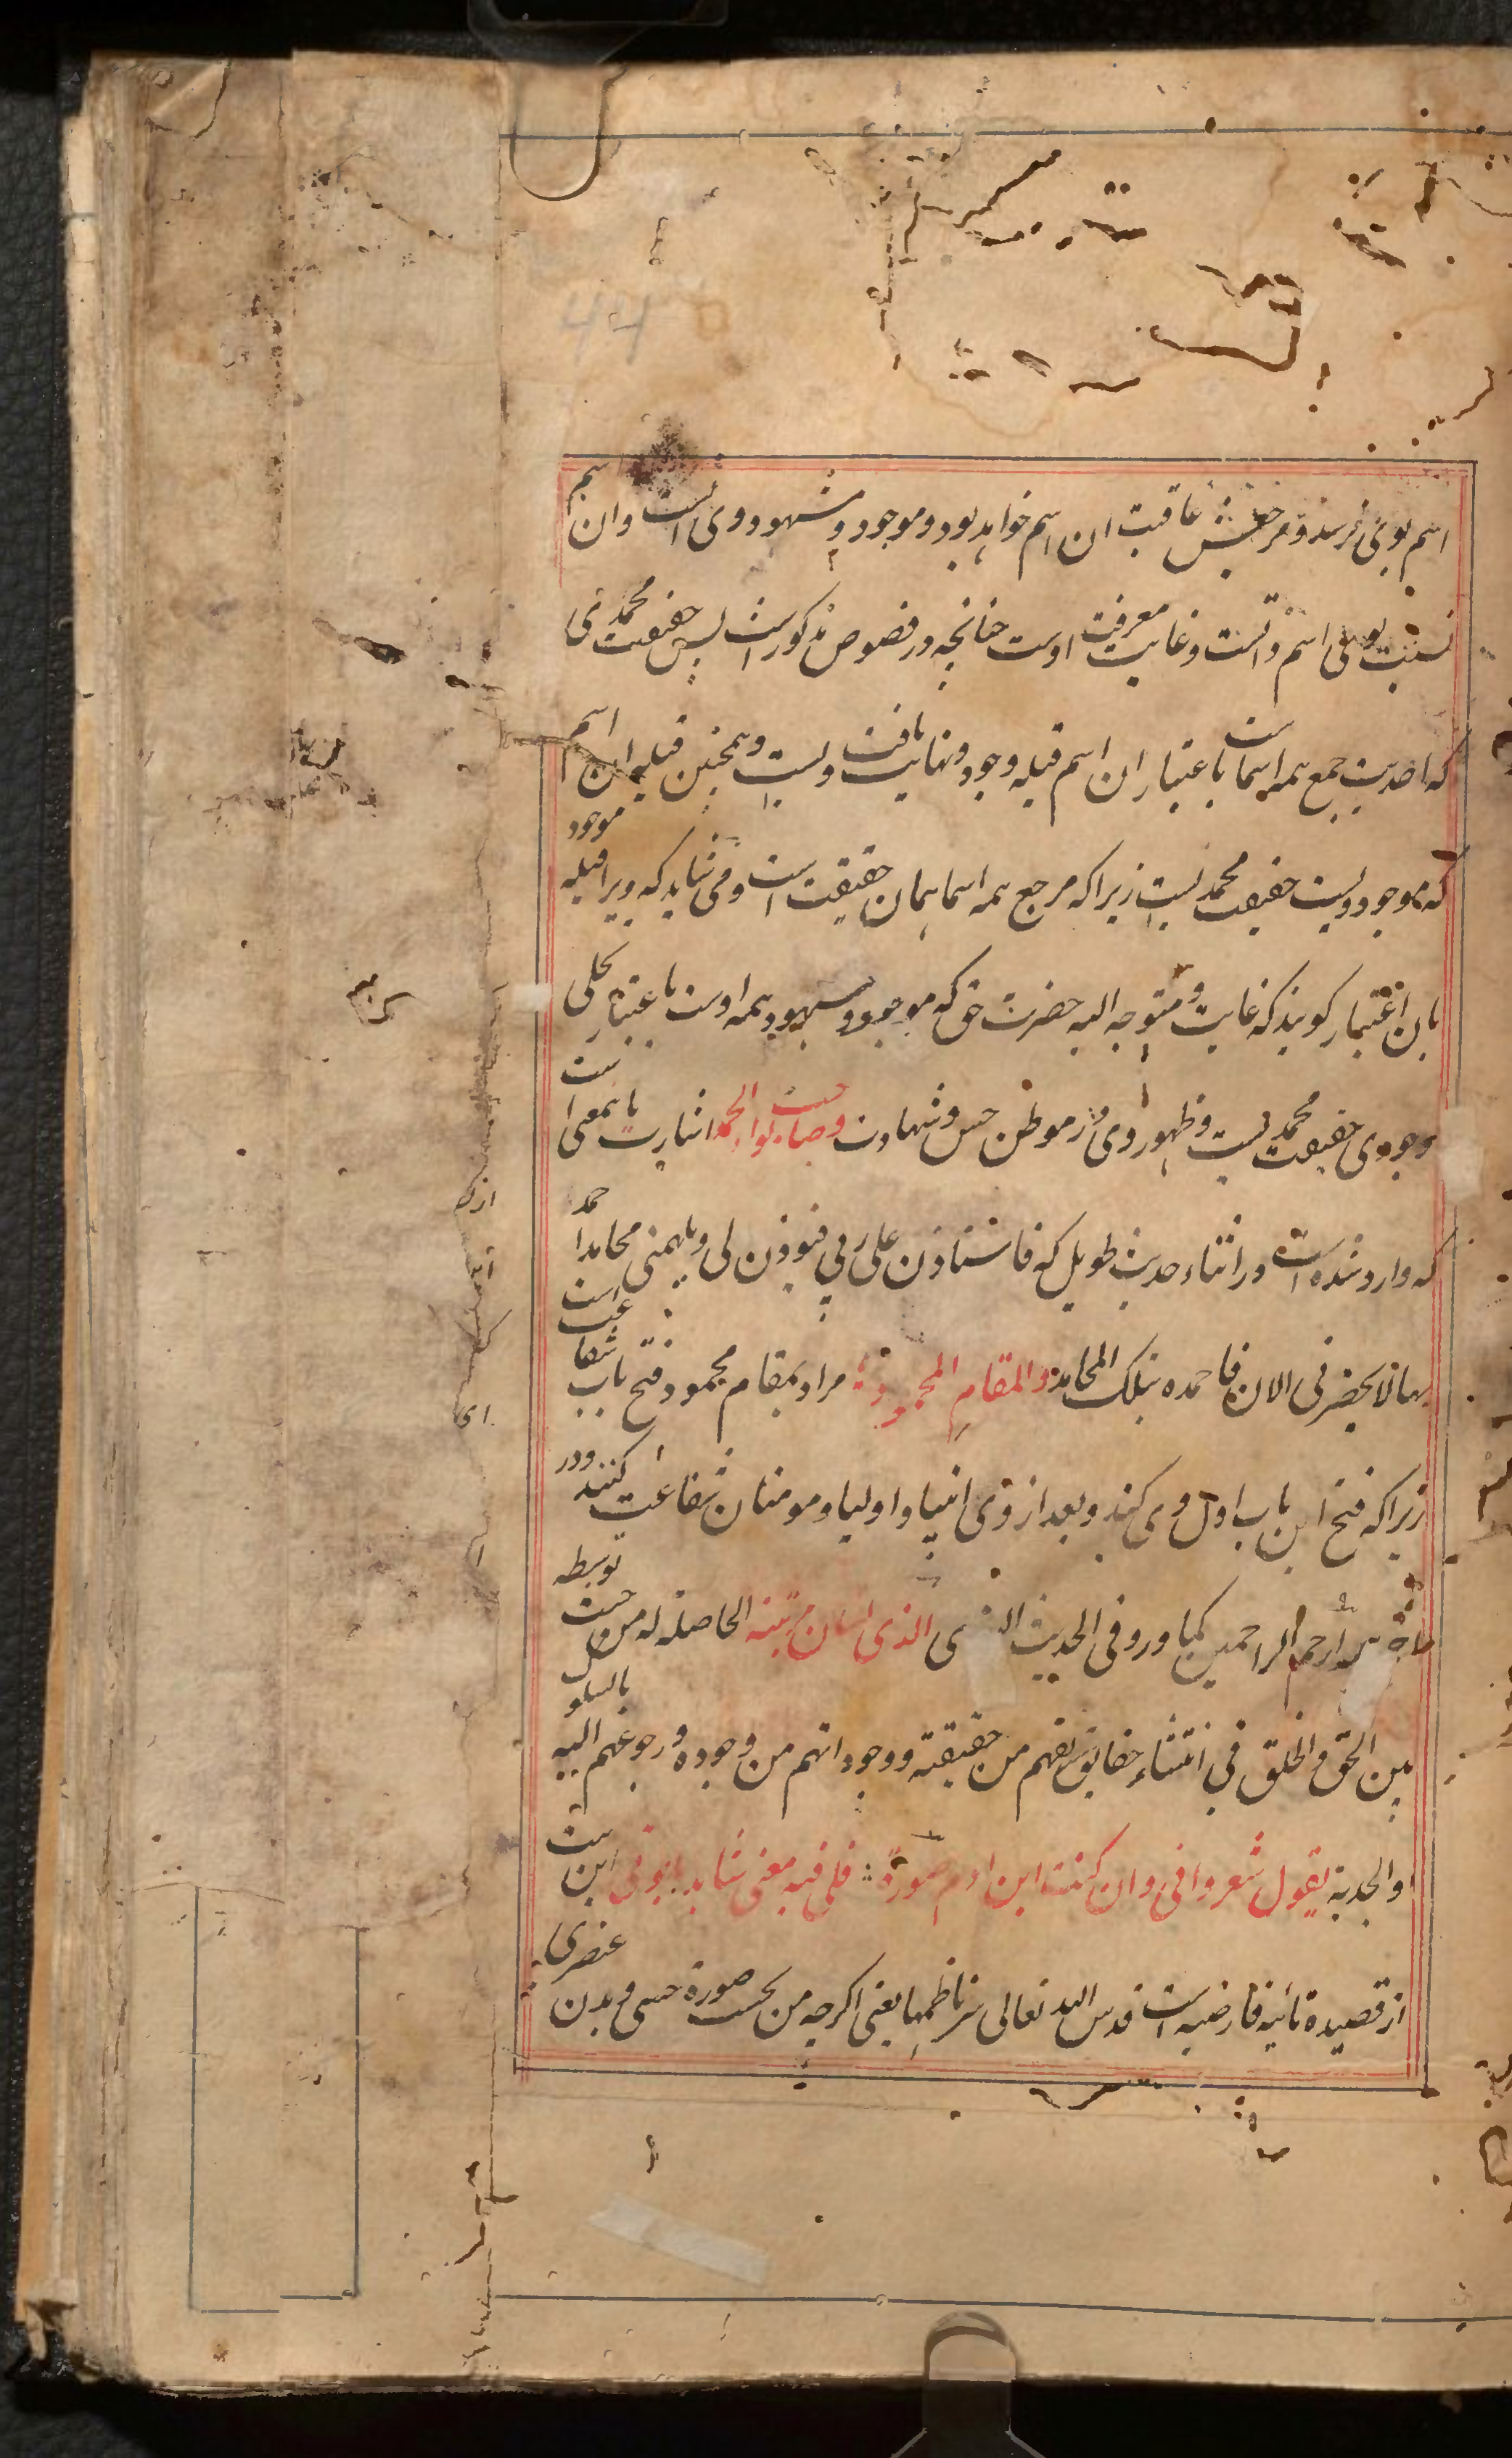 اسم بوی نرسد و مرجعش عاقبت ان اسم خواهد بود و موجود و مشهود وی است وان اسم
نسبت بوی اسم ذاتست وغایت معرفت اوست چنانچه در فصوص مذکورست پس حقیقت محمدی
که احدیت جمع همه اسماست باعتبار ان اسم قبله وجود ونهایت یافت ویست وهمچنین قبله ان اسم
که موجود ویست حقیقت محمدیست زیراکه مرجع همه اسما همان حقیقت است ومی شاید که ویرا قبله موجود
بان اعتبار کویند که غایت و متوجه الیه حضرت حق که موجود و مشهود همه اوست باعتبار تجلی
وجودی حقیقت محمدیست وظهور وی در موطن حس وشهادت وصاحب لواء الحمد اشارت بانمعنی است
که وارد شده است در اثناء حدیث طویل که فاستاذن علی ربی فیوذن لی ویلهمنی محامدا حمده
بها لا یحضرنی الان فاحمده بتلک المحامد والمقام المحمود مراد بمقام محمود فتح باب شفاعت است
زیراکه فتح این باب اول وی کند وبعد از وی انبیا واولیا ومومنان شفاعت کنند ودر
ارحم الراحمین کما ورد فی الحدیث الذی لسان مرتبته الحاصلة له من حیث توسطه
بین الحق والخلق فی انتشاء حقایقهم من حقیقته ووجوداتهم من وجوده ورجوعهم الیه بالسلوک
والجذبة یقول شعر وانی وان کنت ابن ادم صورة فلی فیه معنی شاهد بابوتی این است
از قصیده تائیه فارضیه است قدس الله تعالی سر ناظمها یعنی اکرچه من بحسب صورة حسی و بدن عنصری